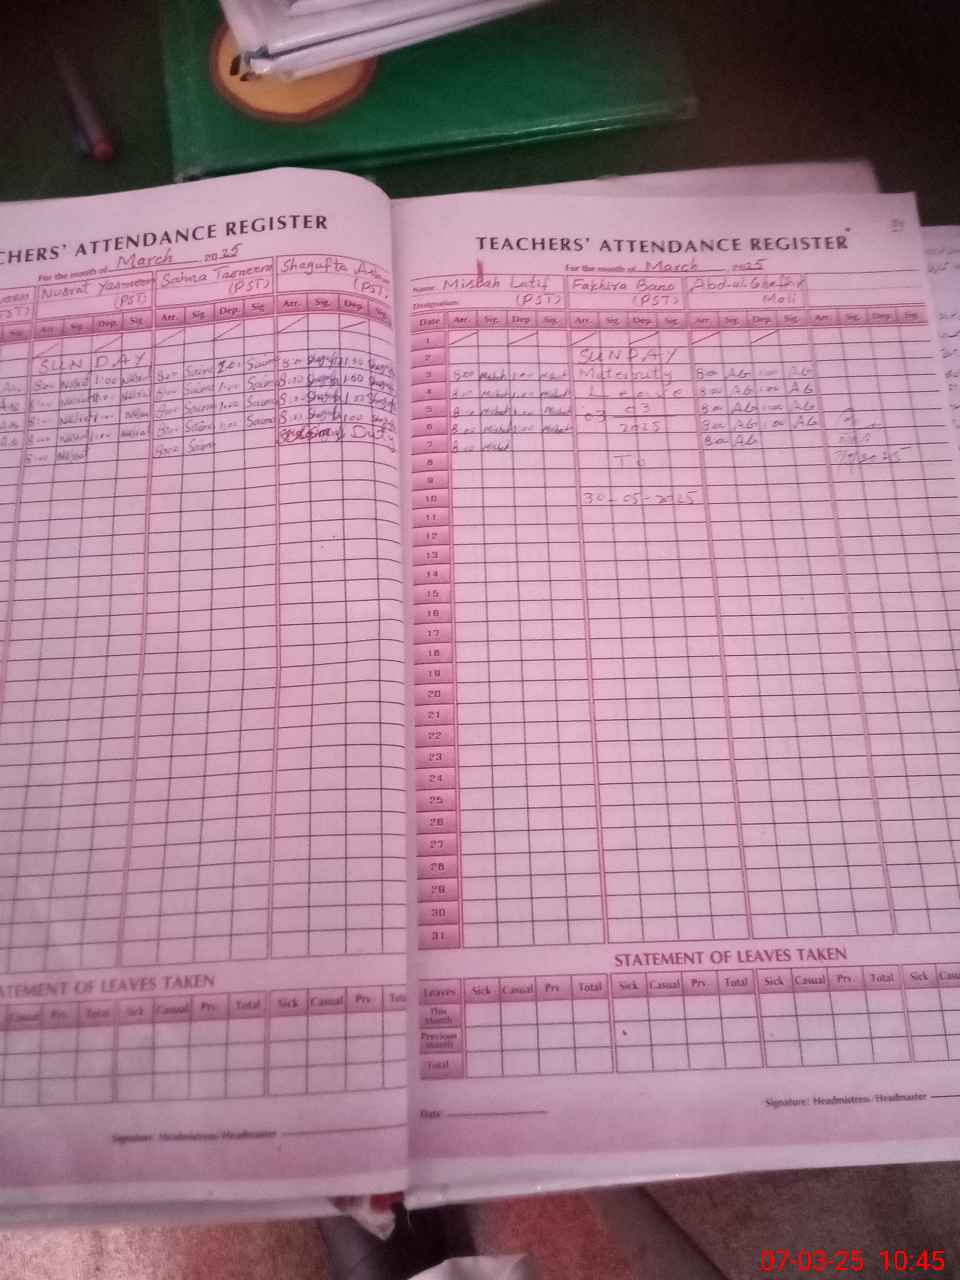 CHERS' ATTENDANCE REGISTER
For the month of March 2025
Nusrat Yasmeen Saima Tasneem Shagufta
(PST) (PST) (PST)
Sig. Arr. Sig. Dep. Sig. Arr. Sig. Dep. Sig. Arr. Sig. Dep. Sig.
SUNDAY
8:00 Nusrat 1:00 Nusrat 8:00 Saima 1:00 Saima 8:00 1:00
8:00 Nusrat 1:00 Nusrat 8:00 Saima 1:00 Saima 8:00 1:00
8:00 Nusrat 1:00 Nusrat 8:00 Saima 1:00 Saima 8:00 1:00
8:00 Nusrat 1:00 Nusrat 8:00 Saima 1:00 Saima 8:00 1:00
8:00 Nusrat 8:00 Saima Duty
ATEMENT OF LEAVES TAKEN
Casual Prv. Total Sick Casual Prv. Total Sick Casual Prv. Tota
Signature: Headmistress/Headmaster
TEACHERS' ATTENDANCE REGISTER
For the month of March 2025
Name Misbah Latif Fakhira Bano Abdul Ghafar
Designation (PST) (PST) Mali
Date Arr. Sig. Dep. Sig. Arr. Sig. Dep. Sig. Arr. Sig. Dep. Sig. Arr. Sig. Dep. Sig.
1
2 SUNDAY
3 8:00 Misbah 1:00 Misbah Maternity 8:00 AG 1:00 AG
4 8:00 Misbah 1:00 Misbah Leave 8:00 AG 1:00 AG
5 8:00 Misbah 1:00 Misbah 03-03 8:00 AG 1:00 AG
6 8:00 Misbah 1:00 Misbah 2025 8:00 AG 1:00 AG
7 8:00 Misbah 8:00 AG
8 To
9
10 30-05-2025
11
12
13
14
15
16
17
18
19
20
21
22
23
24
25
26
27
28
29
30
31
STATEMENT OF LEAVES TAKEN
Leaves Sick Casual Prv. Total Sick Casual Prv. Total Sick Casual Prv. Total Sick Casu
This Month
Previous Month
Total
Signature: Headmistress/Headmaster
Date
07-03-25 10:45